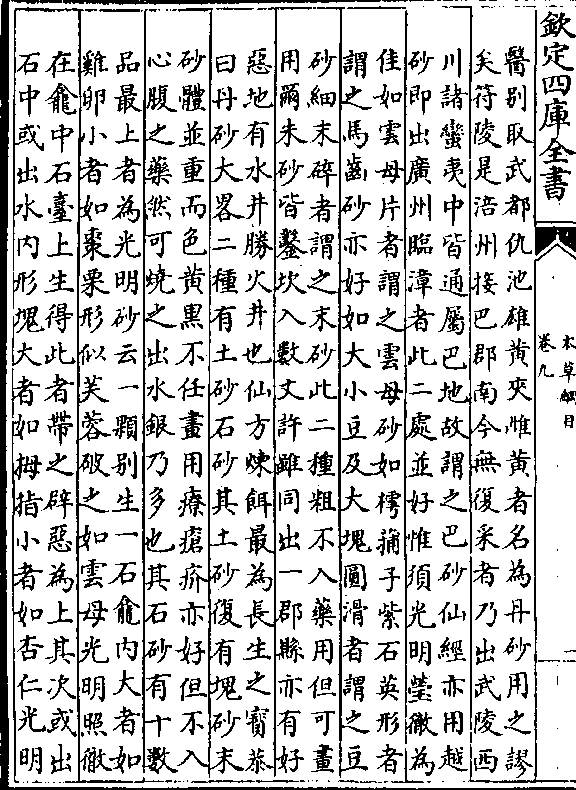 欽定四庫全書
本草綱目
卷九
醫别取武都仇池雄黄夾惟黄者名為丹砂用之謬
矣符陵是涪州接巴郡南今無復采者乃出武陵西
川諸蠻夷中皆通屬巴地故謂之巴砂仙經亦用越
砂即出廣州臨漳者此二處並好惟須光明瑩徹為
佳如雲母片者謂之雲母砂如樗蒱子紫石英形者
謂之馬齒砂亦好如大小豆及大塊圓滑者謂之豆
砂細末碎者謂之末砂此二種粗不入藥用但可畫
用爾朱砂皆鑿坎入數丈許雖同出一郡縣亦有好
惡地有水井勝火井也仙方煉餌最為長生之寳恭
曰丹砂大畧二種有土砂石砂其土砂復有塊砂末
砂體並重而色黄黒不任畫用療瘡疥亦好但不入
心腹之藥然可燒之出水銀乃多也其石砂有十數
品最上者為光明砂云一顆别生一石龕内大者如
雞卵小者如棗栗形似芙蓉破之如雲母光明照徹
在龕中石臺上生得此者帶之辟惡為上其次或出
石中或出水内形塊大者如拇指小者如杏仁光明